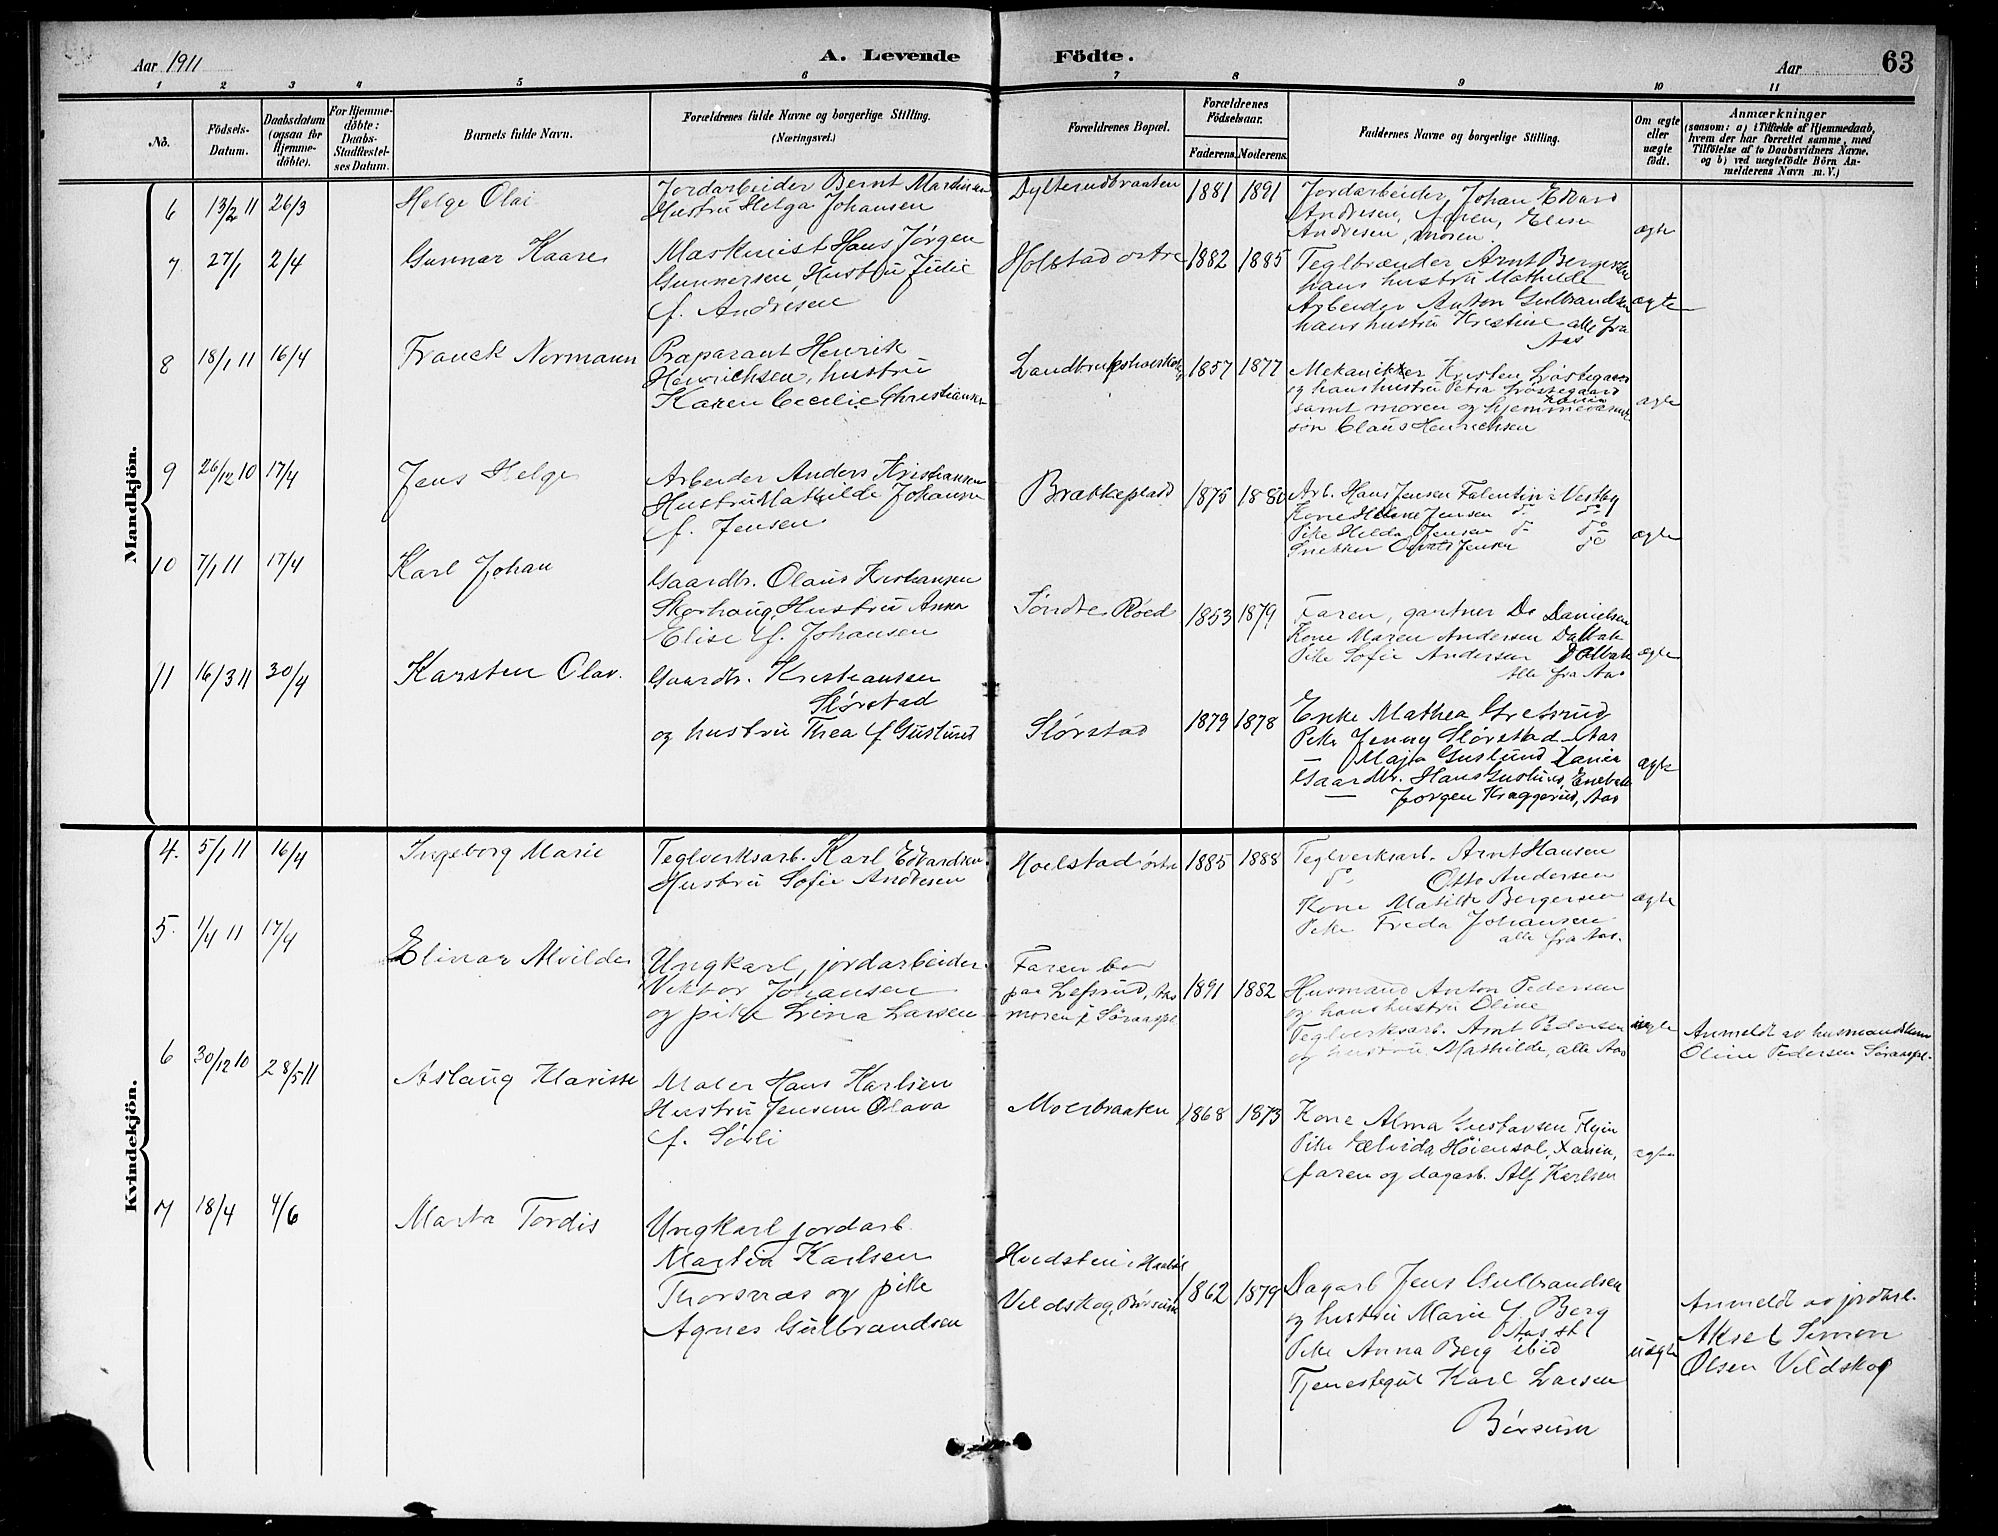 Aar 1911
A. Levende Födte.
Aar
63
1 2 3 4 5 6 7 8 9 10 11
No.
Födsels-Datum.
Daabsdatum (ogsaa for Hjemme-döbte).
For Hjemme-döbte: Daabs-Stadfæstel-ses Datum.
Barnets fulde Navn.
Forældrenes fulde Navne og borgerlige Stilling. (Næringsvei.)
Forældrenes Bopæl.
Forældrenes Födselsaar.
Faderens. Moderens.
Faddernes Navne og borgerlige Stilling.
Om ægte eller uægte födt.
Anmærkninger
(saasom: a) i Tilfælde af Hjemmedaab,
hvem der har forrettet samme, med
Tilföielse af to Daabsvidners Navne,
og b) ved uægtefödte Börn An-
melderens Navn m. V.)
Mandkjön.
6 13/2 11 26/3 Helge Olai
Jordarbeider Bernt Martinsen
Hustru Helga Johansen
1881 1891
Jordarbeider Johan Edvard
Andresen, faren, Elise
Andresen, moren.
ægte
7 27/1 2/4 Gunnar Kaare
Maskinist Hans Jørgen
Gunnersen, Hustru Julie
f. Andresen
Holstad østre 1882 1885
Teglbrænder Arnt Bergersen
hans hustru Mathilde
Arbeider Anton Gulbrandsen
hans hustru Kristine alle fra
Aas
ægte
8 18/1 11 16/4 Franck Normann
Præparant Henrik
Henrichsen, hustru
Karen Cecilie Christiansen
Landbrukshøiskolen 1857 1877
Mekaniker Kristen
og hans hustru Petra
samt moren og hjemmeværende
søn Claus Henrichsen
ægte
9 26/12 10 17/4 Jens Helge
Arbeider Anders Kristiansen
Hustru Mathilde Johanne
f. Jensen
Brækkeplads 1875 1880
Arb. Hans Jensen Falentin i Vestby
Kone Helene Jensen do do
Pike Helda Jensen do do
Snekker Jensen do
ægte
10 7/1 11 17/4 Karl Johan
Gaardbr. Olaus Kristiansen
Skorhaug, Hustru Anna
Elise f. Johansen
Søndre Røed 1853 1879
Faren, gartner Danielsen
Kone Maren Andersen
Pike Sofie Andersen
alle fra Aas
ægte
11 16/3 11 30/4 Karsten Olav.
Gaardbr. Kristiansen
Slørstad
og hustru Thea f Guslund
Slørstad 1879 1878
Enke Mathea Gretrud
Pike Jenny Slørstad Aas
— Maja Guslund
Gaardbr. Hans Guslund, Enebak
— Jørgen Kraggerud, Aas
ægte
Kvindekjön.
4. 5/1 11 16/4 Ingeborg Marie
Teglverksarb. Karl Edvardsen
Hustru Sofie Andresen
Holstad østre 1885 1888
Teglverksarb. Arnt Hansen
do Otto Andersen
Kone Matilde Bergersen
Pike Freda Johansen
alle fra Aas.
ægte
5. 1/4 11 17/4 Elinar Alvilde
Ungkarl, jordarbeider
Viktor Johansen
og pike Lina Larsen
Faren bor
paa Lefsrud, Aas
moren i Søraaspl.
1891 1882
Husmand Anton Pedersen
og hans hustru Oline
Teglverksarb. Arnt Pedersen
og hustru Mathilde, alle Aas
uægte
Anmeldt av husmandskone
Oline Pedersen Søraaspl.
6 30/12 10 28/5 11 Aslaug Klarisse
Maler Hans Karlsen
Hustru Jensine Olava
f. Sørli
Moerbraaten 1868 1873
Kone Alma Gustavsen
Pike Høiensol,
faren og dagarb. Alf Karlsen
ægte
7 18/4 4/6 Marta Tordis
Ungkarl jordarb.
Martin Karlsen
Thorsnæs og pike
Agnes Gulbrandsen
Hvidsten i
Vildskog, Børsum
1862 1879
Dagarb Jens Gulbrandsen
og hustru Marie f. Berg
Aas st
Pike Anna Berg ibid
Tjenestegut Karl Larsen
Børsum
uægte
Anmeldt av jordarb.
Aksel Simon
Olsen Vildskog